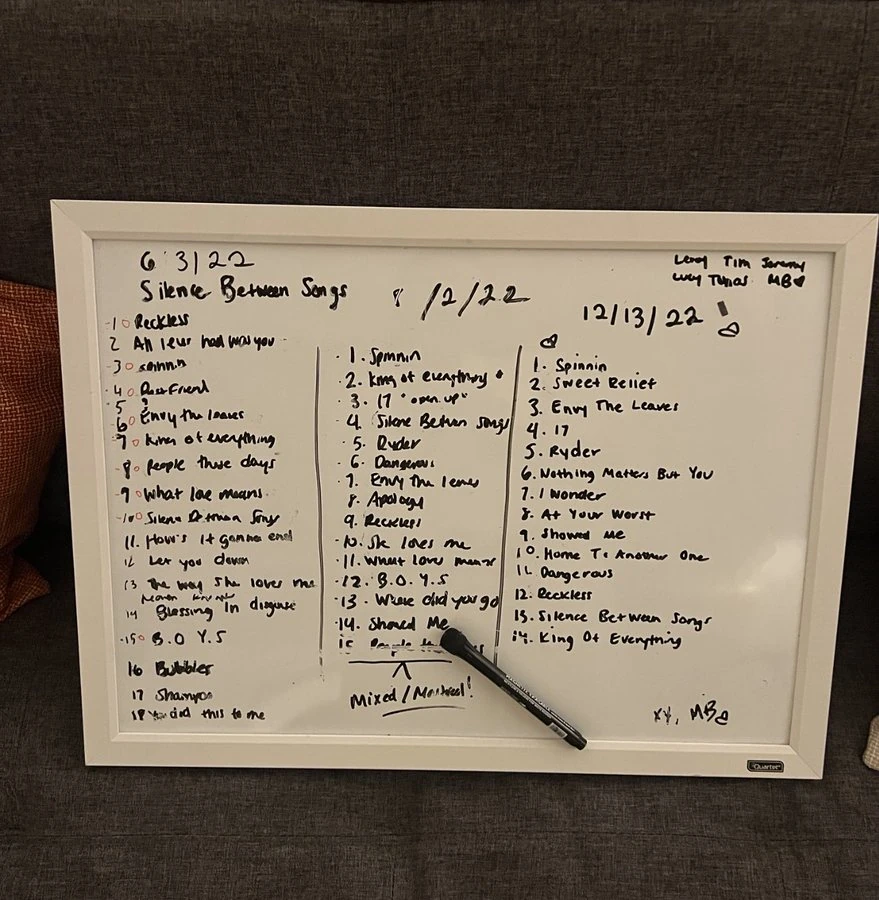 6 3/22
Silence Between Songs
1 Reckless
2 All I ever had was you
3 spinnin
4 Best Friend
5 ?
6 Envy the leaves
7 King of everything
8 People these days
9 What love means
10 Silence Between Songs
11. How's it gonna end
12 Let you down
13 The way she loves me
14 Blessing In disguise
15 B.O Y.S
16 Bubbles
17 Shampoo
18 You did this to me
8/2/22
1. Spinnin
2. King of everything
3. 17 "open up"
4. Silence Between Songs
5. Ryder
6. Dangerous
7. Envy The leaves
8. Apology
9. Reckless
10. She loves me
11. What Love means
12. B.O.Y.S
13. Where did you go
14. Showed Me
15 People
Mixed/Mastered!
Leroy Tim Jeremy
Lucy MB
12/13/22
1. Spinnin
2. Sweet Relief
3. Envy The Leaves
4. 17
5. Ryder
6. Nothing Matters But You
7. I Wonder
8. At Your Worst
9. Showed Me
10. Home To Another One
11. Dangerous
12. Reckless
13. Silence Between Songs
14. King Of Everything
xx, MB
Quartet